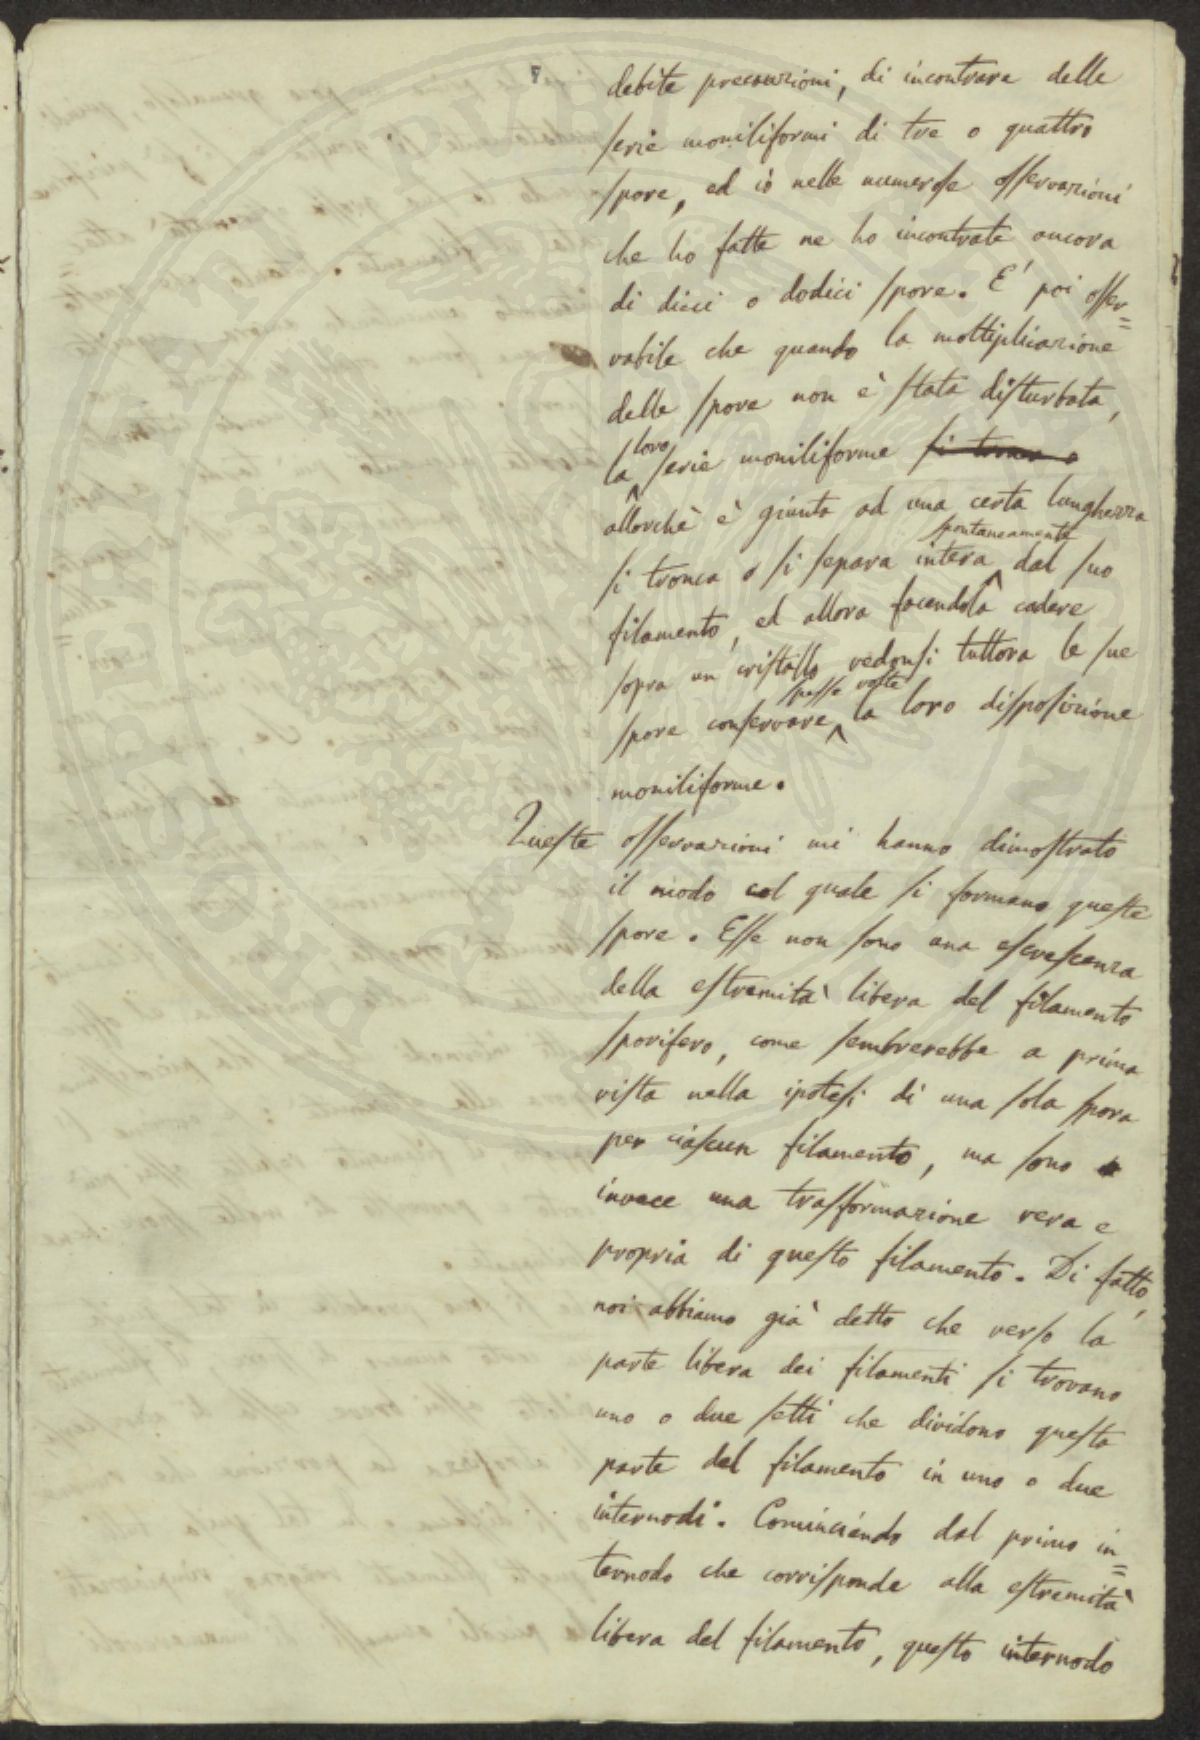 debite precauzioni, di incontrare delle
serie moniliformi di tre o quattro
spore, ed io nelle numerose osservazioni
che ho fatte ne ho incontrate ancora
di dieci o dodici spore. E' poi osser=
vabile che quando la moltiplicazione
delle spore non è stata disturbata,
la loro serie moniliforme si tronca o
allorchè è giunta ad una certa lunghezza
si tronca o si separa intera spontaneamente dal suo
filamento, ed allora facendola cadere
sopra un cristallo vedonsi tuttora le sue
spore conservare spesse volte la loro disposizione
moniliforme.
Queste osservazioni mi hanno dimostrato
il modo col quale si formano queste
spore. Esse non sono una escrescenza
della estremità libera del filamento
sporifero, come sembrerebbe a prima
vista nella ipotesi di una sola spora
per ciascun filamento, ma sono
invece una trasformazione vera e
propria di questo filamento. Di fatto,
noi abbiamo già detto che verso la
parte libera dei filamenti si trovano
uno o due setti che dividono questa
parte del filamento in uno o due
internodi. Cominciando dal primo in=
ternodo che corrisponde alla estremità
libera del filamento, questo internodo